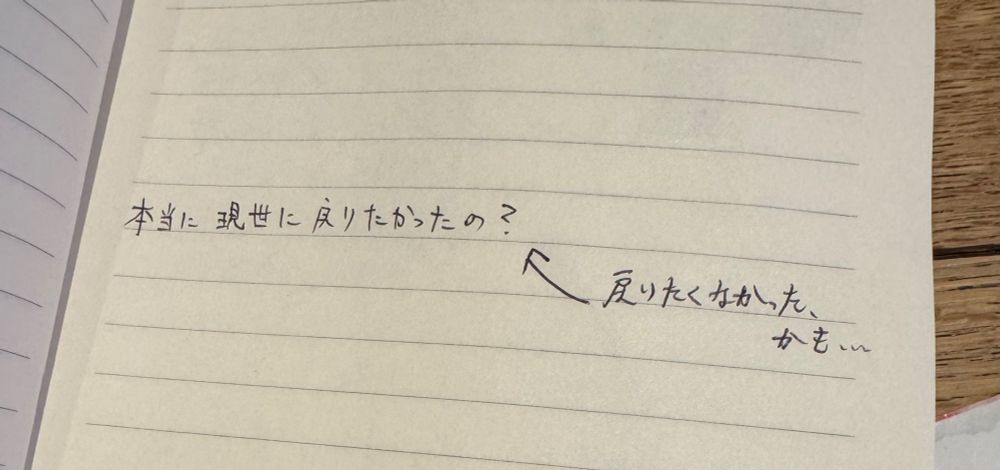 本当に 現世に 戻りたかったの？
戻りたくなかった、
かも…